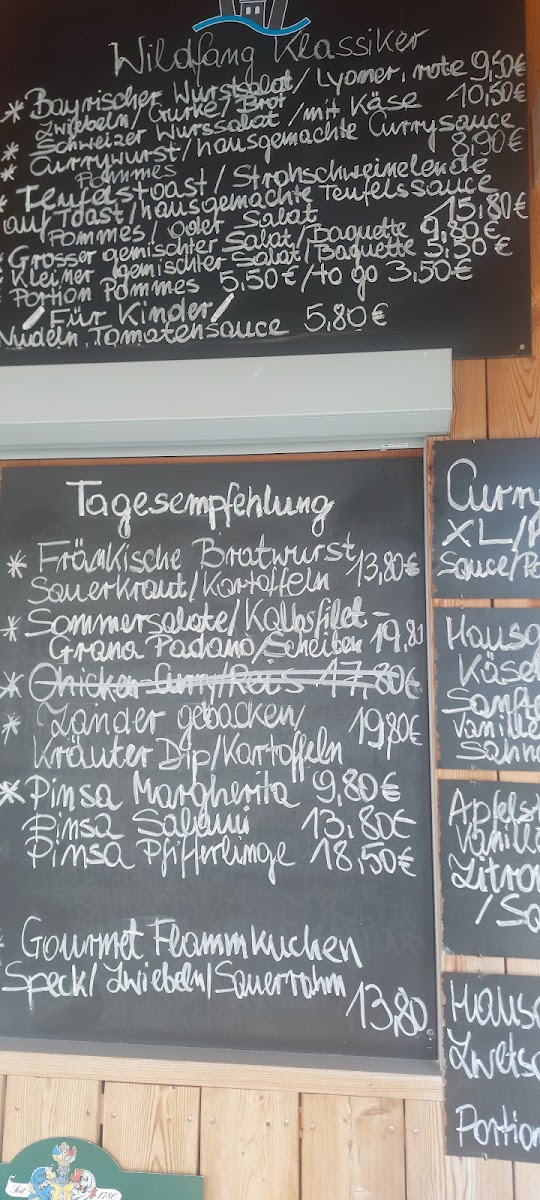 Wildfang Klassiker
* Bayrischer Wurstsalat/Lyoner, rote 9,50€
Zwiebeln/Gurke/Brot
* Schweizer Wurssalat/mit Käse 10,50€
* Currywurst/hausgemachte Currysauce
Pommes 8,90€
* Teufelstoast/Strohschweinelende
auf Toast/hausgemachte Teufelssauce
Pommes/oder Salat 15,80€
* Grosser gemischter Salat/Baguette 9,80€
* Kleiner gemischter Salat/Baguette 5,50€
Portion Pommes 5,50€/to go 3,50€
/Für Kinder/
Nudeln, Tomatensauce 5,80€
Tagesempfehlung
* Fränkische Bratwurst 13,80€
Sauerkraut/Kartoffeln
* Sommersalate/Kalbsfilet-
Grana Padano/Scheiben 19,8
* Chicken Curry/Reis 17,80€
* Zander gebacken/ 19,80€
Kräuter Dip/Kartoffeln
* Pinsa Margherita 9,80€
Pinsa Salami 13,80€
Pinsa Pfifferlinge 18,50€
* Gourmet Flammkuchen
Speck/Zwiebeln/Sauerrahm
13,80
Curr
XL/P
Sauce/Po
Hausg
Käse
Sanft
Vanille
Sahne
Apfelst
Vanill
Zitro
/Sa
Hausg
Zwetsc
Portion
Seit 1780